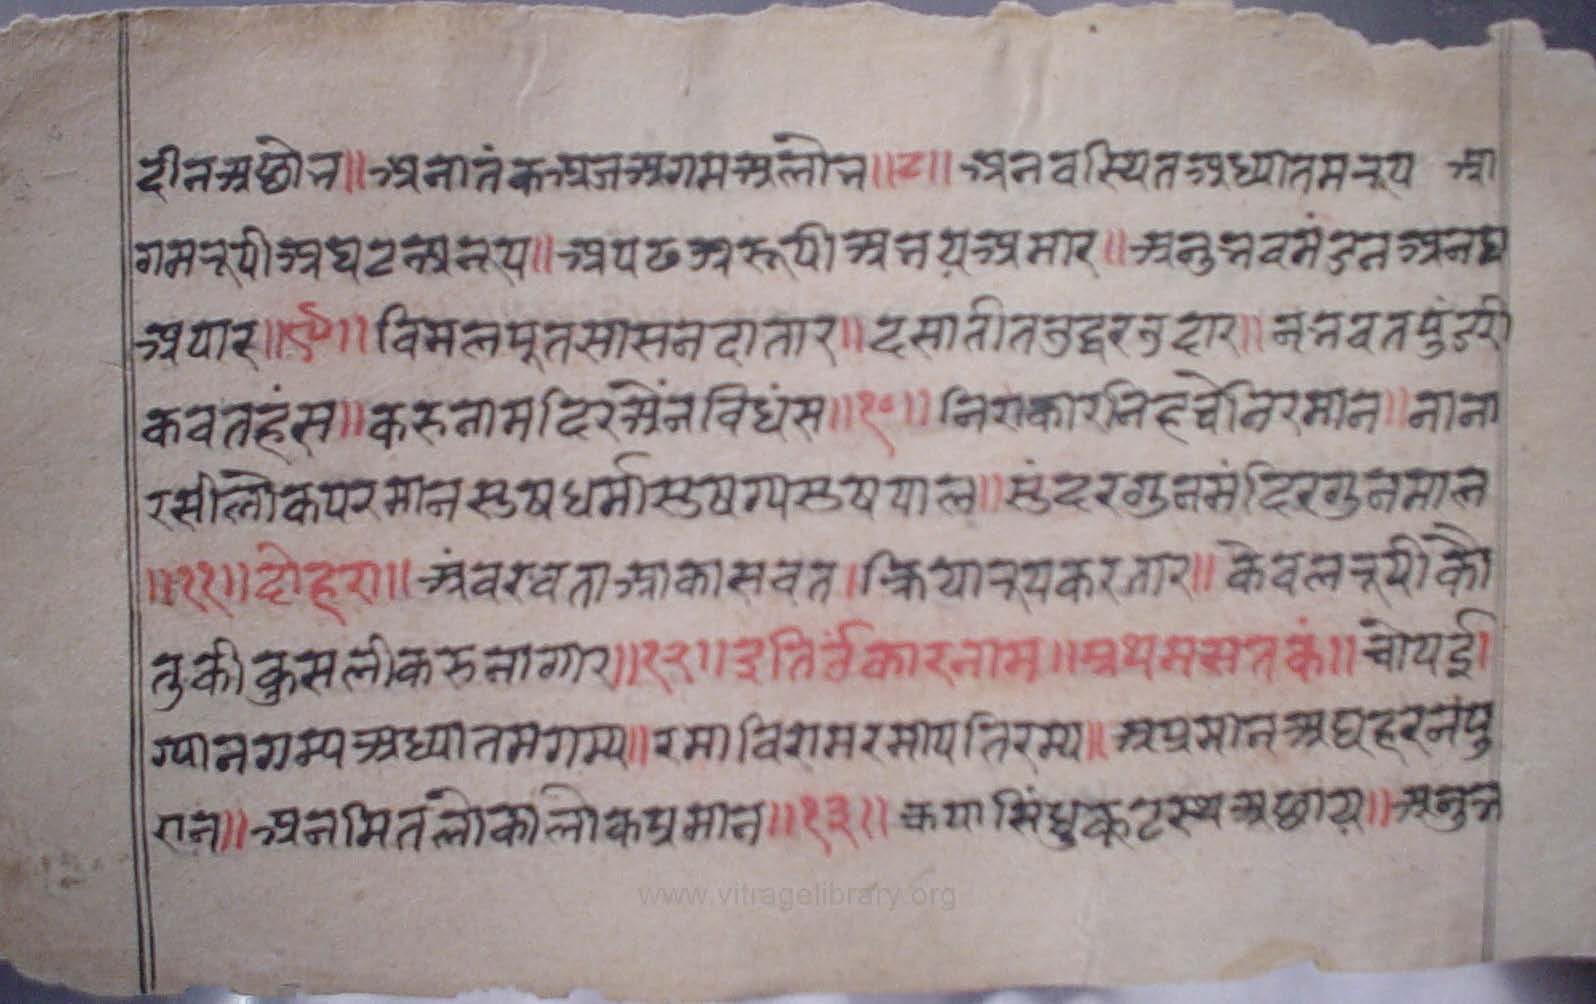 दीनअछोभ॥अनातंकअजअगमअलोभ॥८॥अनवस्थितअध्यातमरूप आ
गमरूपीअघटअनरूप॥अपठअरूपीअभयअमार॥अनुभवमंडनअनघ
अपार॥९॥विमलपूतसासनदातार॥दसातीतउद्धरनउदार॥नभवतपुंडरी
कवतहंस॥करुनामंदिरअैनविधंस॥१०॥निराकारनिहचैनिरमान॥नाना
रसीलोकपरमानसुषधर्मीसुषग्यसुषपाल॥सुंदरगुनमंदिरगुनमाल
॥११॥दोहरा॥अंबरवताआकासवत।क्रियारूपकरतार॥केवलरूपीकौ
तुकीकुसलीकरुनागार॥१२॥इतिउंकारनाम॥प्रथमसतकं॥चौपई।
ग्यानगम्यअध्यातमगम्य॥रमाविरामरमापतिरम्य॥अप्रमानअघहरनपु
रान॥अनमितलोकालोकप्रमान॥१३॥कृपासिंधुकूटस्थअछाय॥अनुभ
www.vitragelibrary.org